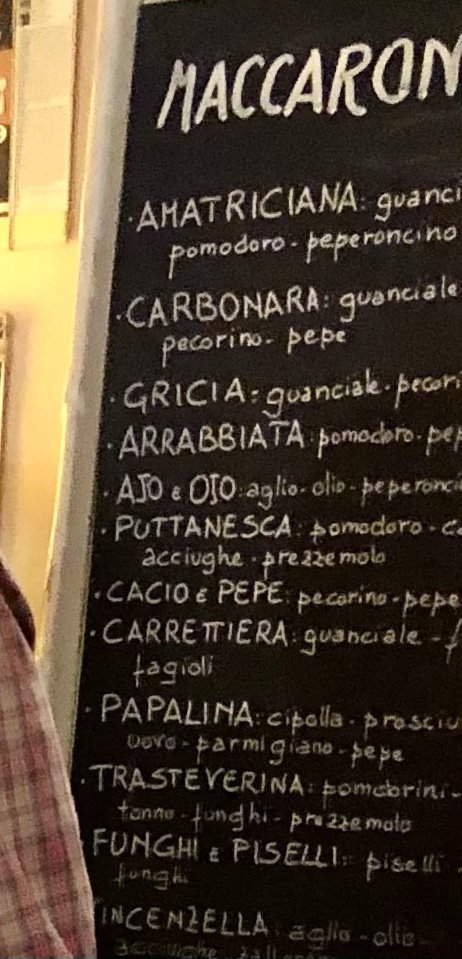 MACCARON
· AMATRICIANA: guanci
pomodoro - peperoncino
· CARBONARA: guanciale
pecorino - pepe
· GRICIA: guanciale - pecori
· ARRABBIATA: pomodoro - pep
· AJO e OJO: aglio - olio - peperonci
· PUTTANESCA: pomodoro - ca
acciughe - prezzemolo
· CACIO e PEPE: pecorino - pepe
· CARRETTIERA: guanciale - f
fagioli
· PAPALINA: cipolla - prosciu
uovo - parmigiano - pepe
· TRASTEVERINA: pomodorini -
tonno - funghi - prezzemolo
FUNGHI e PISELLI: piselli -
funghi
INCENZELLA: aglio - olio -
acciughe